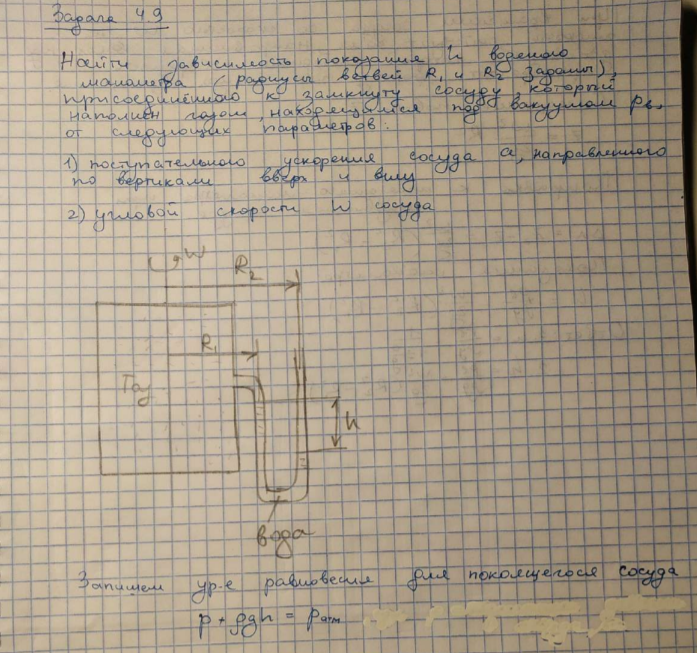 Задача 4.9
Найти зависимость показания h водяного
манометра (радиусы ветвей R₁ и R₂ заданы),
присоединённого к замкнуту сосуду, который
наполнен газом, находящимся под вакуумом pв,
от следующих параметров:
1) поступательного ускорения сосуда a, направленного
по вертикали вверх и вниз
2) угловой скорости ω сосуда
ω
R₂
R₁
Газ
h
вода
Запишем ур-е равновесия для покоящегося сосуда
p + ρgh = pатм